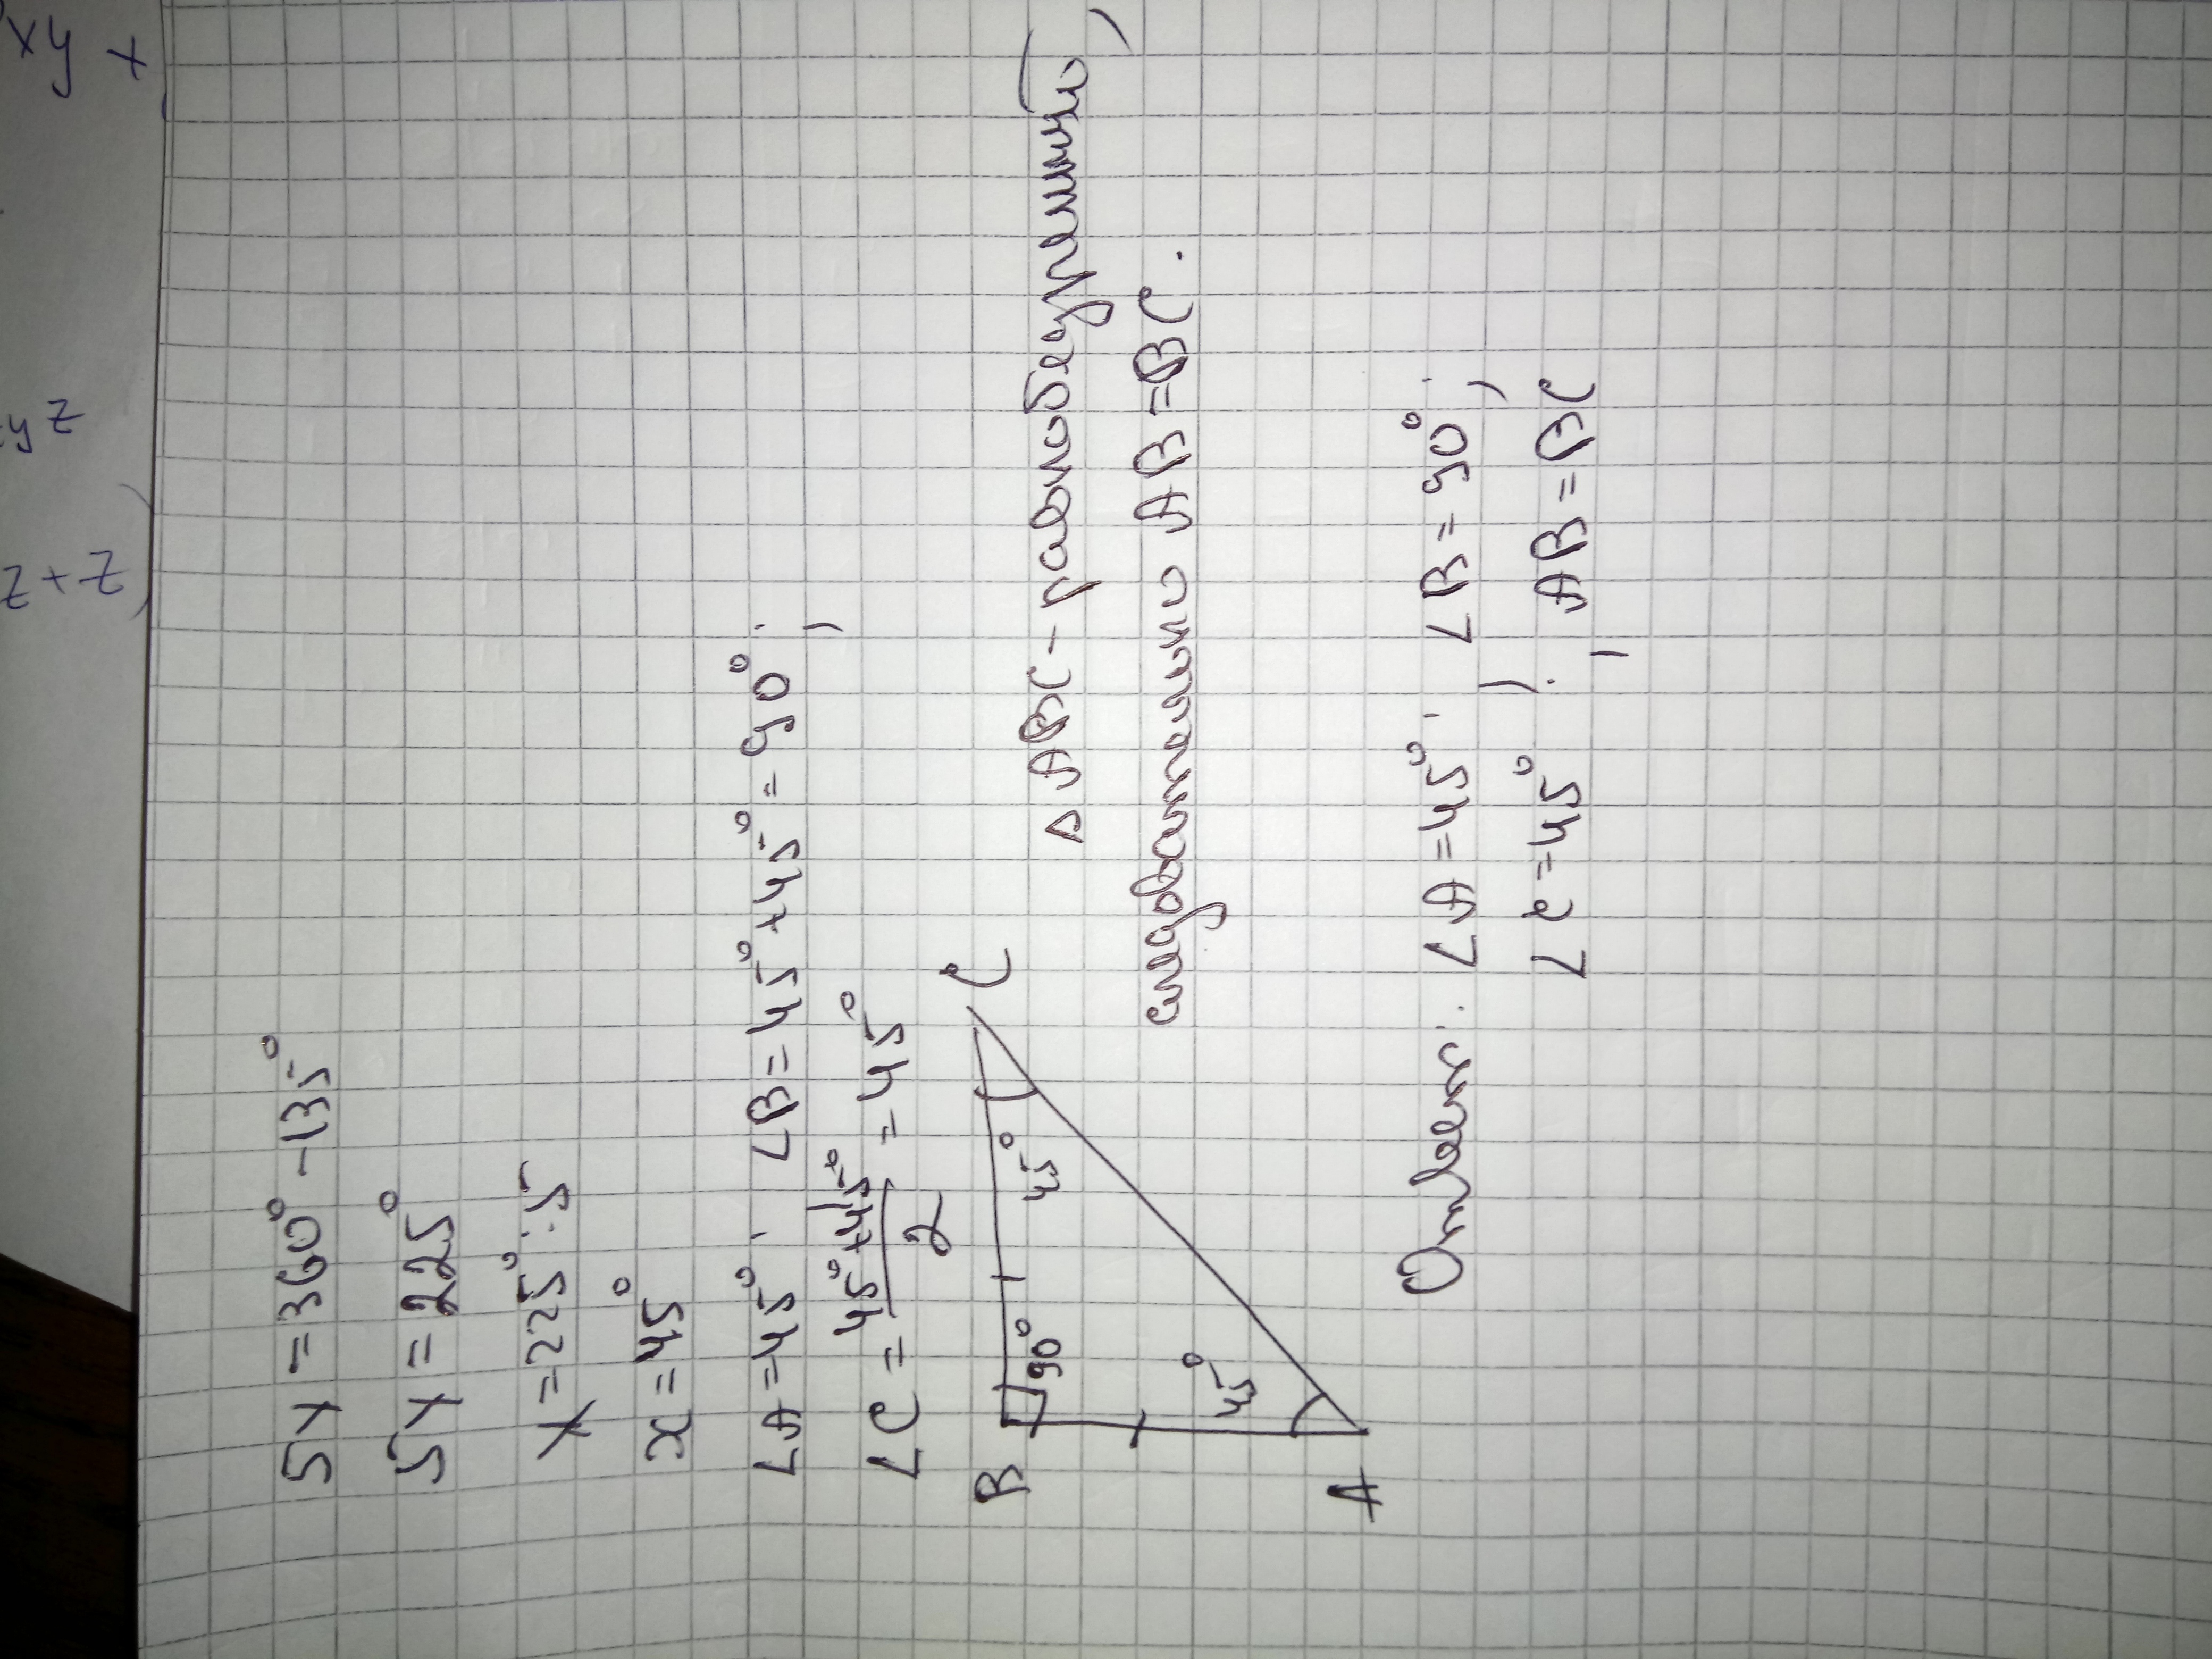 xy +
yz
z + z)
5x = 360° - 135°
5x = 225°
x = 225° : 5
x = 45°
∠A = 45° ; ∠B = 45° + 45° = 90° ;
∠C = (45° + 45°)/2 = 45°
B 90° 45° C
45°
A
△ABC - равнобедренный,
следовательно AB = BC.
Ответ: ∠A = 45° ; ∠B = 90° ;
∠C = 45° ; AB = BC